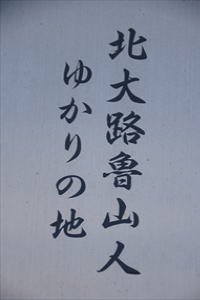 北大路魯山人
ゆかりの地